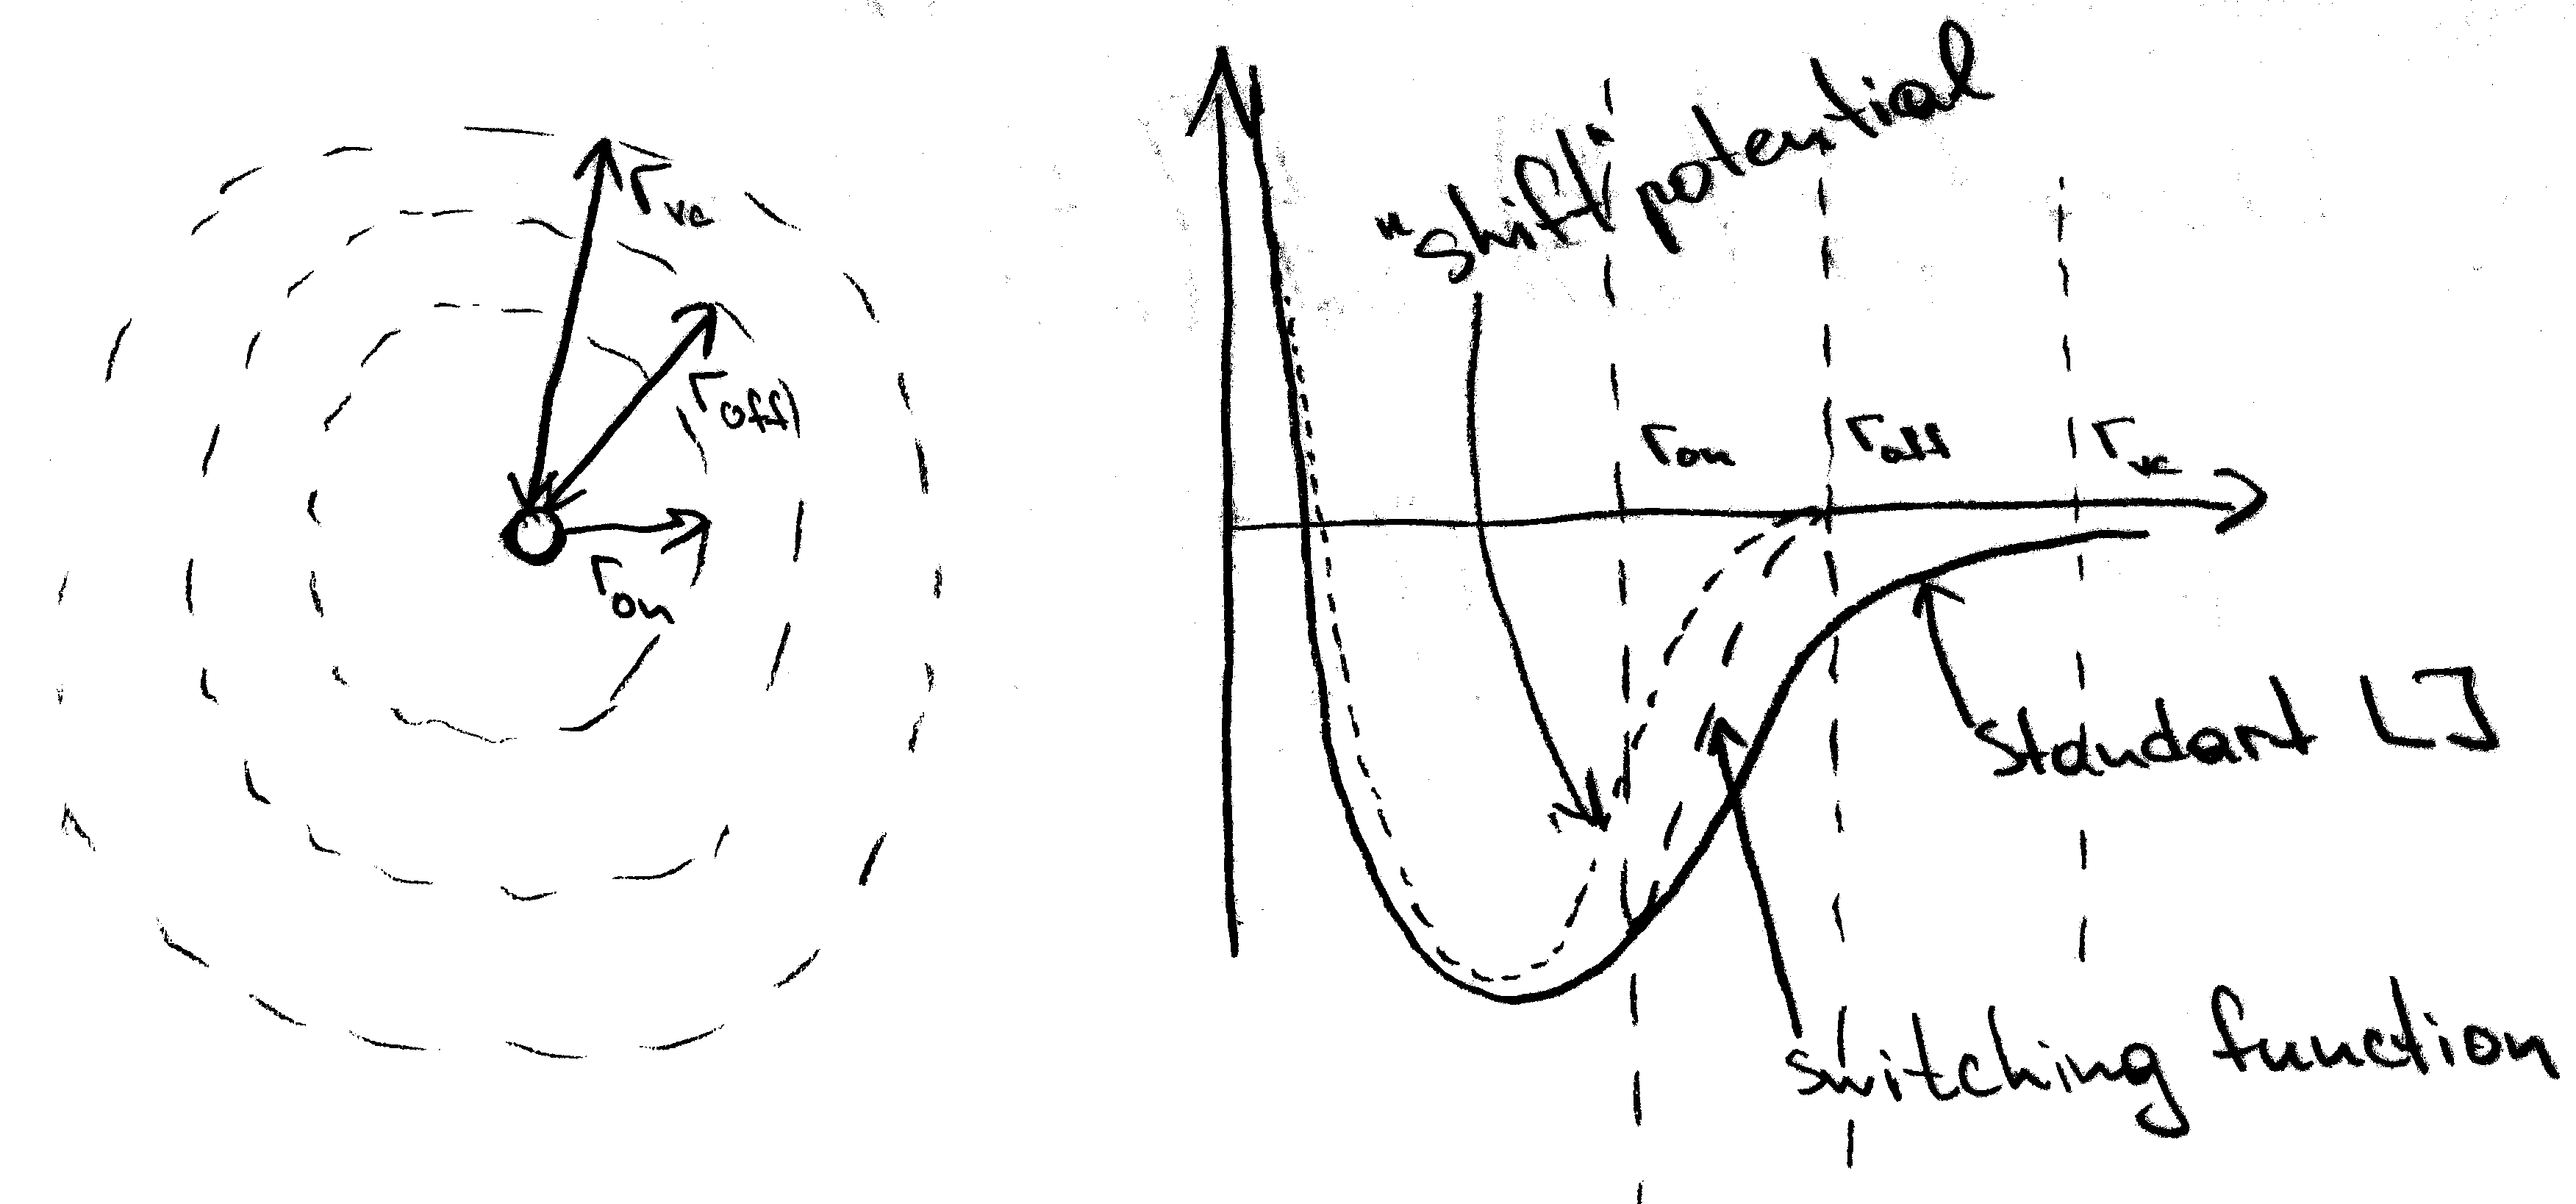 r_vc
r_off
r_on
"shift" potential
r_on
r_off
r_vc
standart LJ
switching function